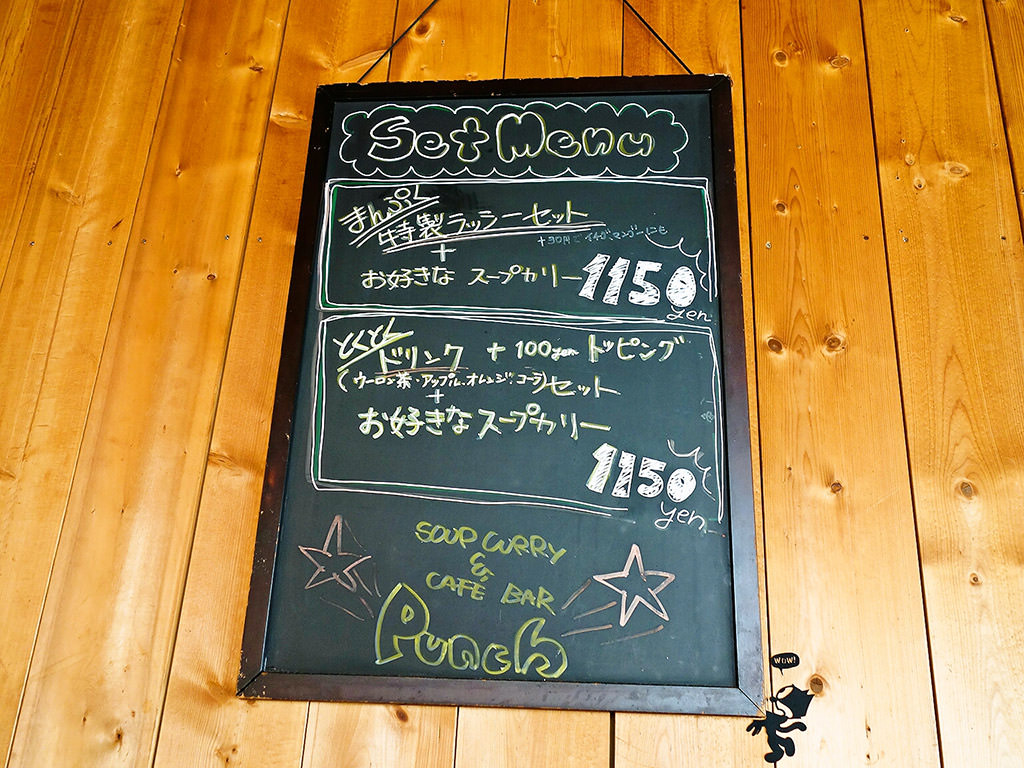 Set Menu
まんぷく
特製ラッシーセット
+30円でイチゴ、マンゴーにも
+
お好きな スープカリー 1150
yen
とくとく
ドリンク + 100yen トッピング
(ウーロン茶・アップル、オレンジ、コーラ) セット
+
お好きなスープカリー
1150
yen
SOUP CURRY
&
CAFE BAR
Punch
WOW!